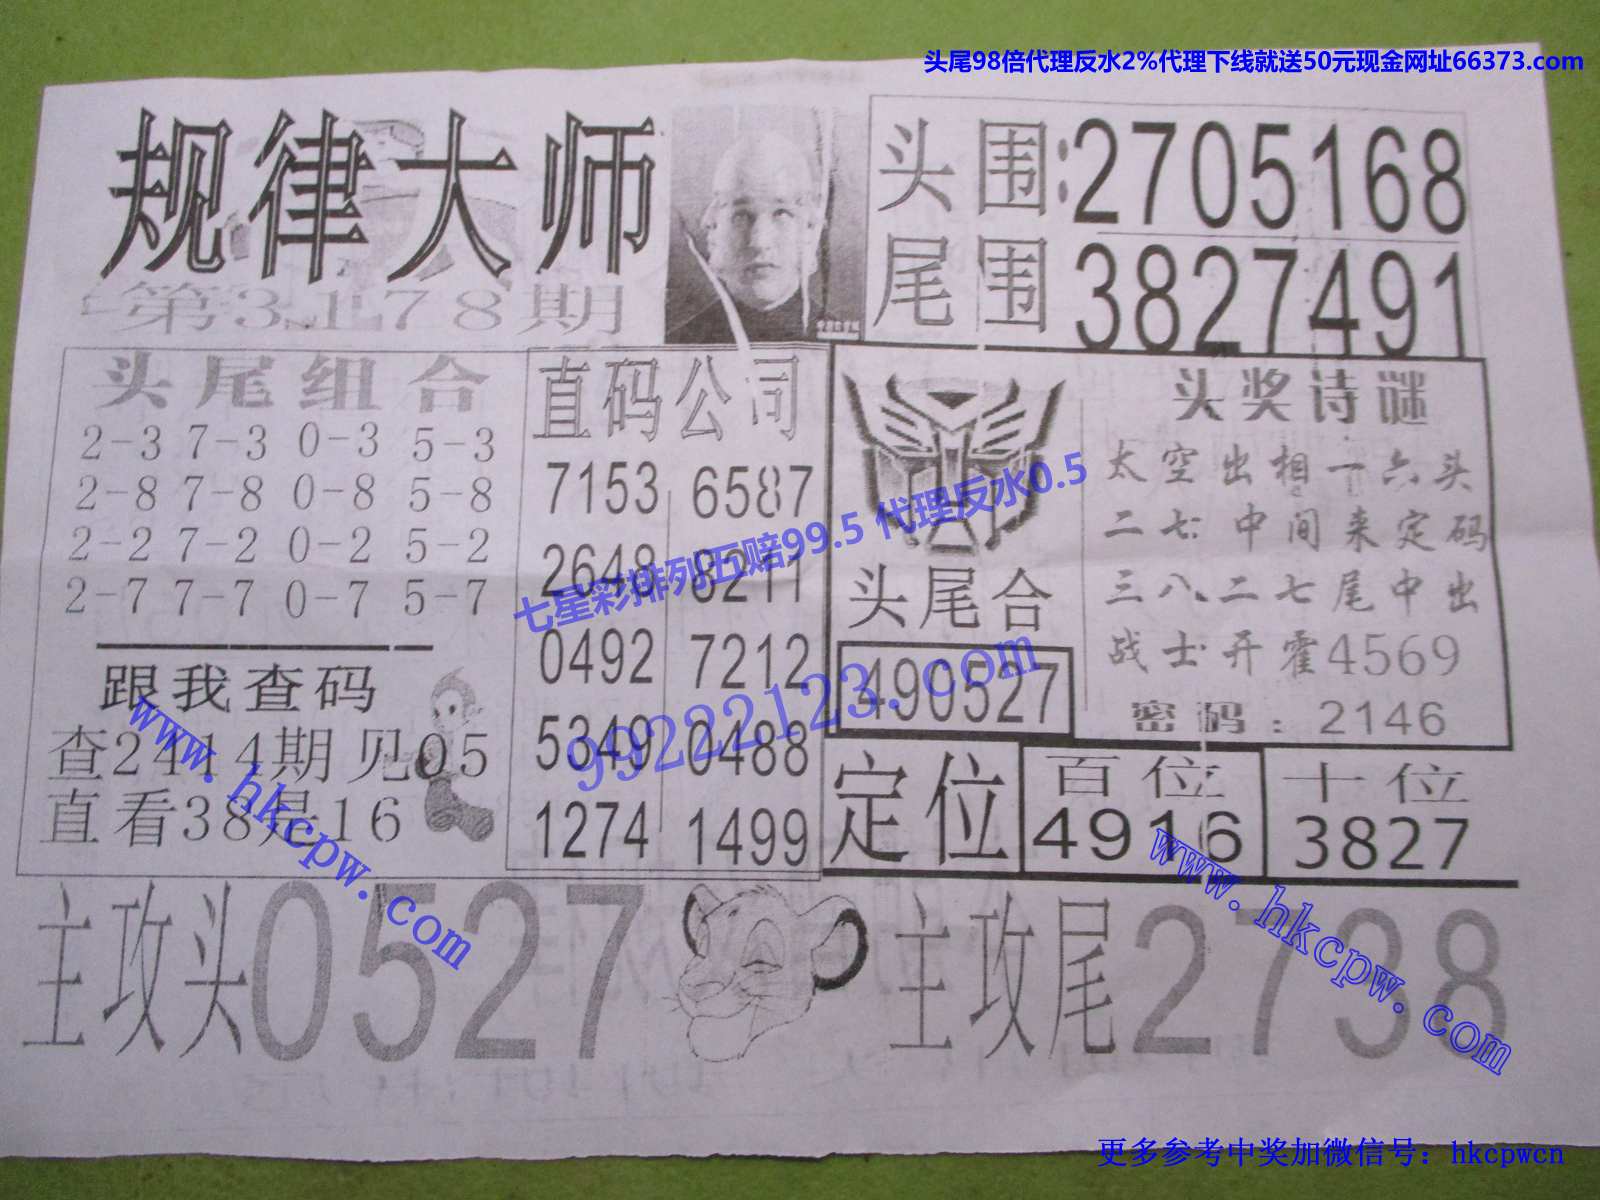 头尾98倍代理反水2%代理下线就送50元现金网址66373.com
规律大师
第3178期
头围:2705168
尾围3827491
头尾组合
2-3 7-3 0-3 5-3
2-8 7-8 0-8 5-8
2-2 7-2 0-2 5-2
2-7 7-7 0-7 5-7
跟我查码
查2414期见05
直看38是16
直码公司
7153 6587
2648 8211
0492 7212
5349 0488
1274 1499
七星彩排列五赔99.5 代理反水0.5
99222123.com
头尾合
490527
头奖诗谜
太空出相一六头
二七中间来定码
三八、二七尾中出
战士开霍4569
密码：2146
定位
百位
4916
十位
3827
主攻头0527
主攻尾2738
www.hkcpw.com
www.hkcpw.com
更多参考中奖加微信号：hkcpwcn